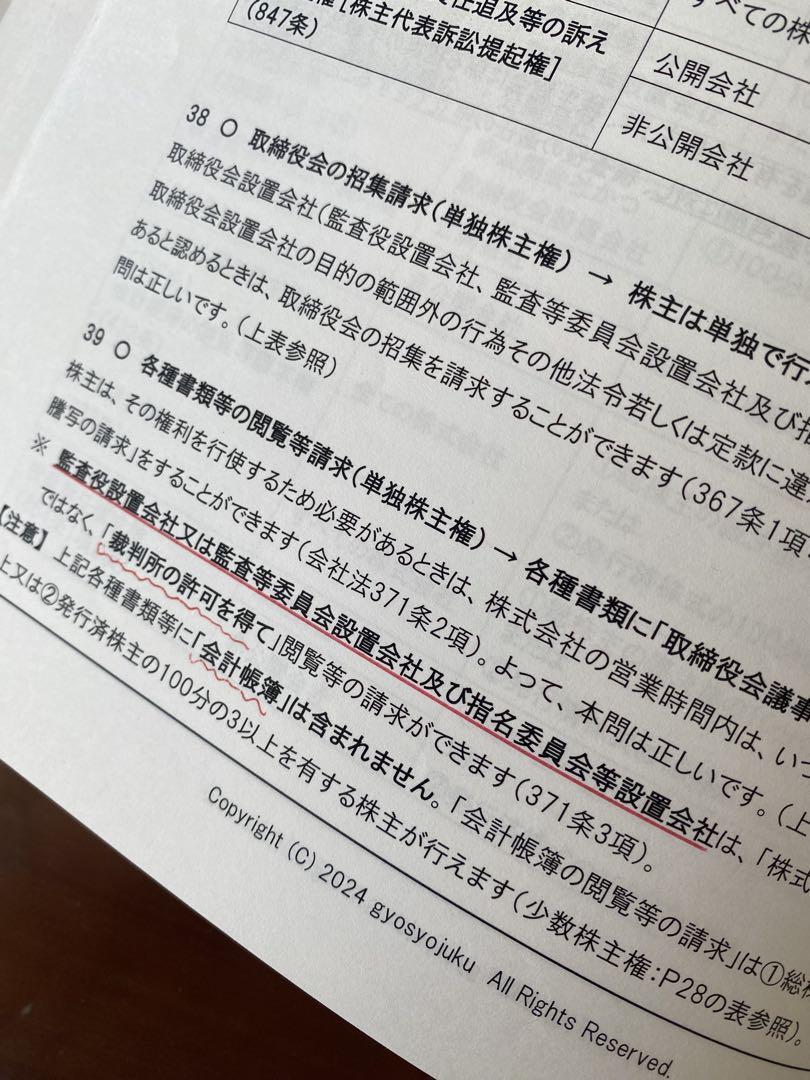 任追及等の訴え
権[株主代表訴訟提起権]
(847条)
すべての株
公開会社
非公開会社
38 ○ 取締役会の招集請求(単独株主権) → 株主は単独で行
取締役会設置会社(監査役設置会社、監査等委員会設置会社及び指
取締役会設置会社の目的の範囲外の行為その他法令若しくは定款に違
あると認めるときは、取締役会の招集を請求することができます(367条1項
問は正しいです。(上表参照)
39 ○ 各種書類等の閲覧等請求(単独株主権) → 各種書類に「取締役会議事
株主は、その権利を行使するため必要があるときは、株式会社の営業時間内は、いつ
謄写の請求」をすることができます(会社法371条2項)。よって、本問は正しいです。(上
※ 監査役設置会社又は監査等委員会設置会社及び指名委員会等設置会社は、「株式
ではなく、「裁判所の許可を得て」閲覧等の請求ができます(371条3項)。
【注意】 上記各種書類等に「会計帳簿」は含まれません。「会計帳簿の閲覧等の請求」は①総
上又は②発行済株主の100分の3以上を有する株主が行えます(少数株主権:P28の表参照)。
Copyright (C) 2024 gyosyojuku All Rights Reserved.